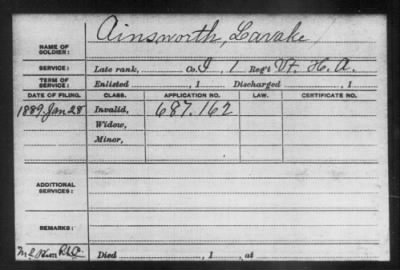 Ainsworth, Lavake
NAME OF SOLDIER:
SERVICE: Late rank, Co. I, 1 Reg't Vt. H. A.
TERM OF SERVICE: Enlisted , 1 Discharged , 1
DATE OF FILING. CLASS. APPLICATION NO. LAW. CERTIFICATE NO.
1889 Jan 28 Invalid, 687.162
Widow,
Minor,
ADDITIONAL SERVICES:
REMARKS:
Died , 1 , at